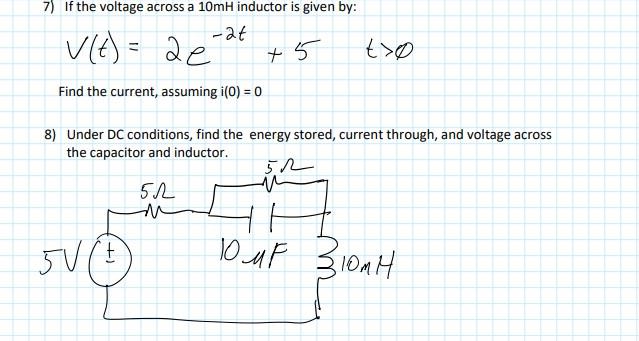 7) If the voltage across a 10mH inductor is given by:
V(t) = 2e^-2t + 5 t>0
Find the current, assuming i(0) = 0
8) Under DC conditions, find the energy stored, current through, and voltage across
the capacitor and inductor.
5Ω
5Ω
5V
+
-
10µF
10mH